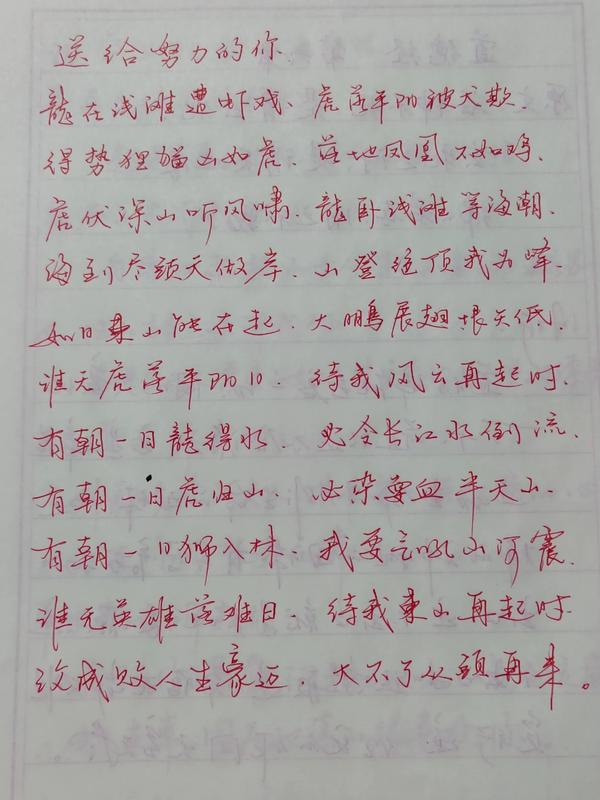 送给努力的你
龍在浅滩遭虾戏、虎落平阳被犬欺.
得势狸猫凶如虎、落地凤凰不如鸡、
虎伏深山听风啸.龍卧浅滩等海朝.
海到尽頭天做岸.山登绝顶我为峰.
如日東山能在起.大鵬展翅恨天低.
谁无虎落平阳日.待我风云再起时.
有朝一日龍得水.必令长江水倒流.
有朝一日虎归山.必染要血半天山.
有朝一日狮入林、我要言吼山河震.
谁无英雄落难日.待我東山再起时.
成败人生豪迈.大不了从頭再来。